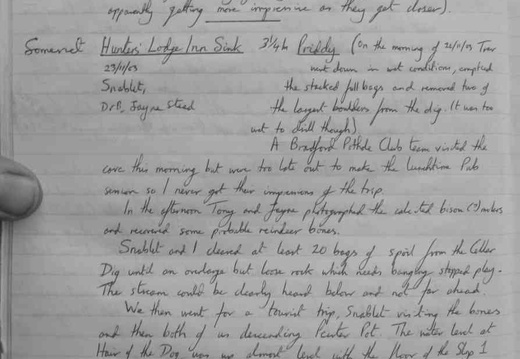 apparently getting more impressive as they get closer).
Somerset Hunters' Lodge Inn Sink 3¼h Priddy (On the morning of 22/11/03 Trev
23/11/03 went down in wet conditions,
Snablet, the stacked full bags and removed two of
Dr B, Jayne Stead the largest boulders from the dig. It was too
wet to drill though)
A Bradford Pothole Club team visited the
cave this morning but were too late out to make the lunchtime Pub
session so I never got their impressions of the trip.
In the afternoon Tony and Jayne photographed the calcited bison (?) molars
and recovered some probable reindeer bones.
Snablet and I cleared at least 20 bags of spoil from the Cellar
Dig until an onslage but loose rock which needs banging stopped play.
The stream could be clearly heard below and not far ahead.
We then went for a tourist trip, Snablet visiting the bones
and then both of us descending Pewter Pot. The water level at
Hair of the Dog was almost level with the floor of the Slop 1